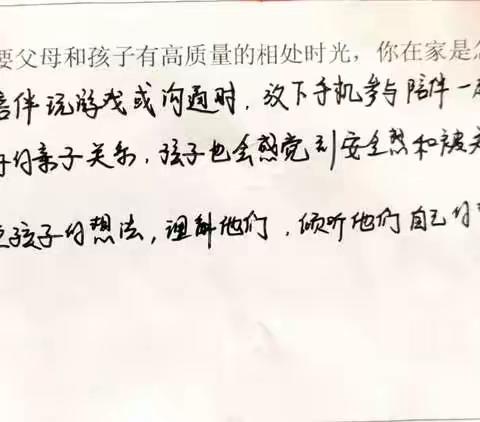 要父母和孩子有高质量的相处时光，你在家是怎
陪伴玩游戏或沟通时，放下手机参与陪伴一
的亲子关系，孩子也会感觉到安全感和被
孩子的想法，理解他们，倾听他们自己的